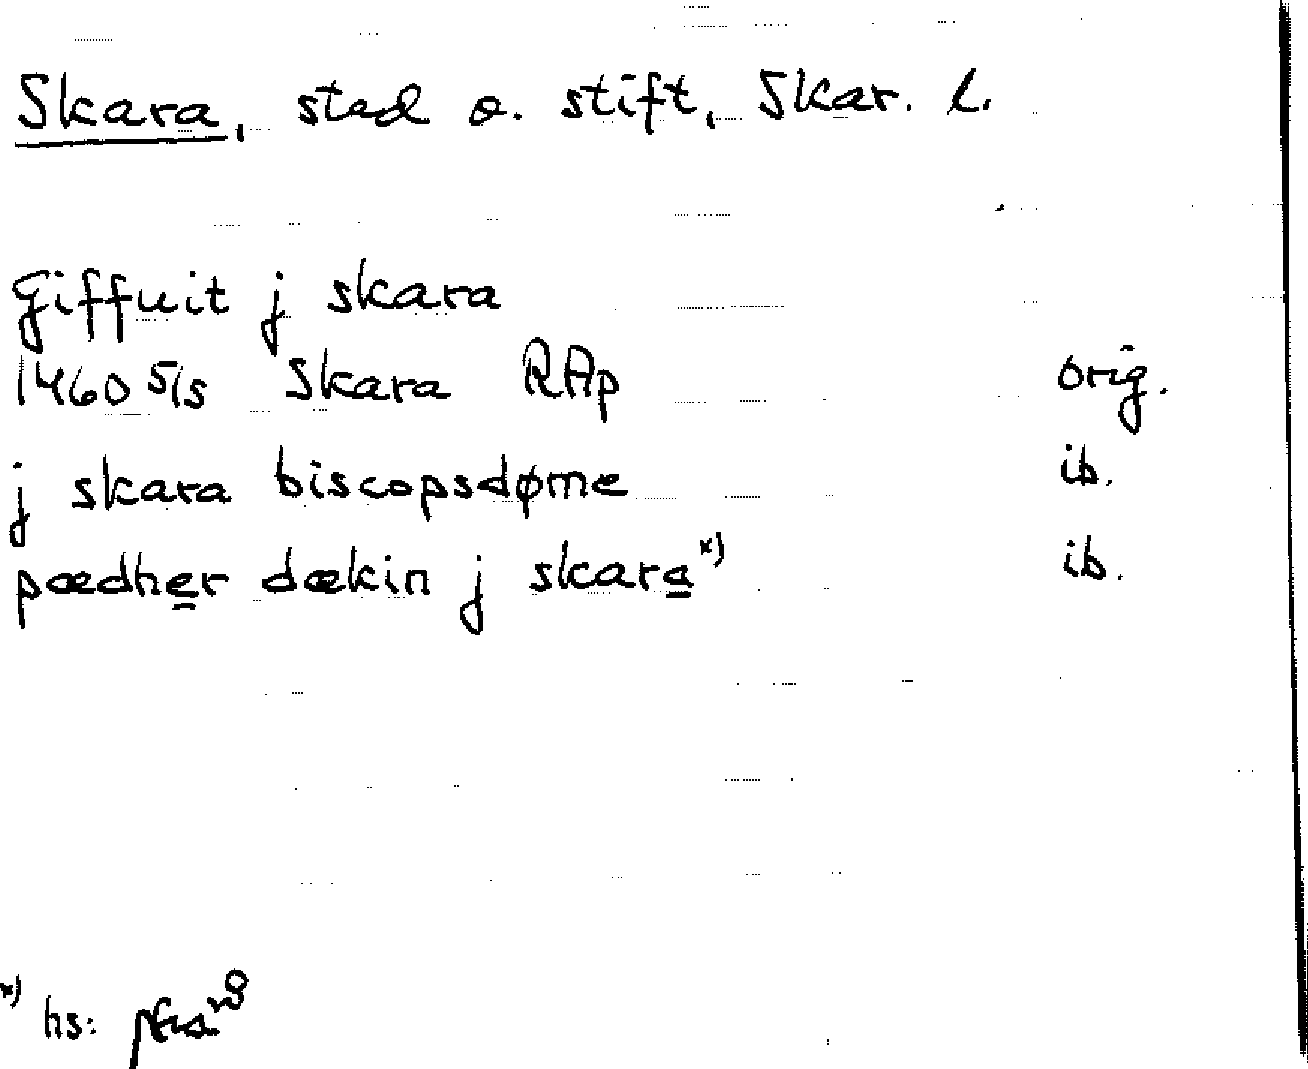 Skara, stad o. stift, Skar. l.
Giffuit j skara
1460 5/5 Skara RAp orig.
j skara biscopsdøme ib.
pædher dækin j skara x) ib.
x) hs: